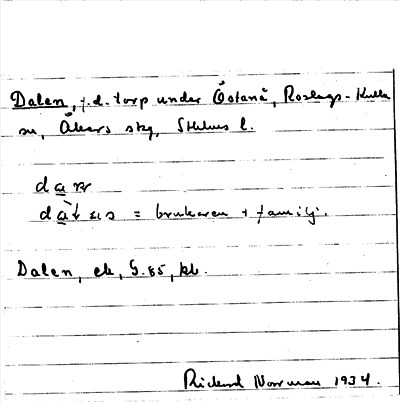 Dalen, f.d. torp under Östanå, Roslags-Kulla
sn, Åkers skg, Sthlms l.
= brukaren + familj.
Dalen, ek, S. 85, kb.
Rickard Norrman 1934.